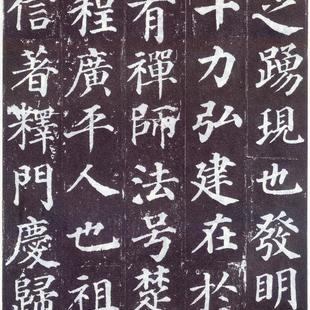 之踴現也發明
十力弘建在於
有禪師法号楚
程廣平人也祖
信著釋門慶歸